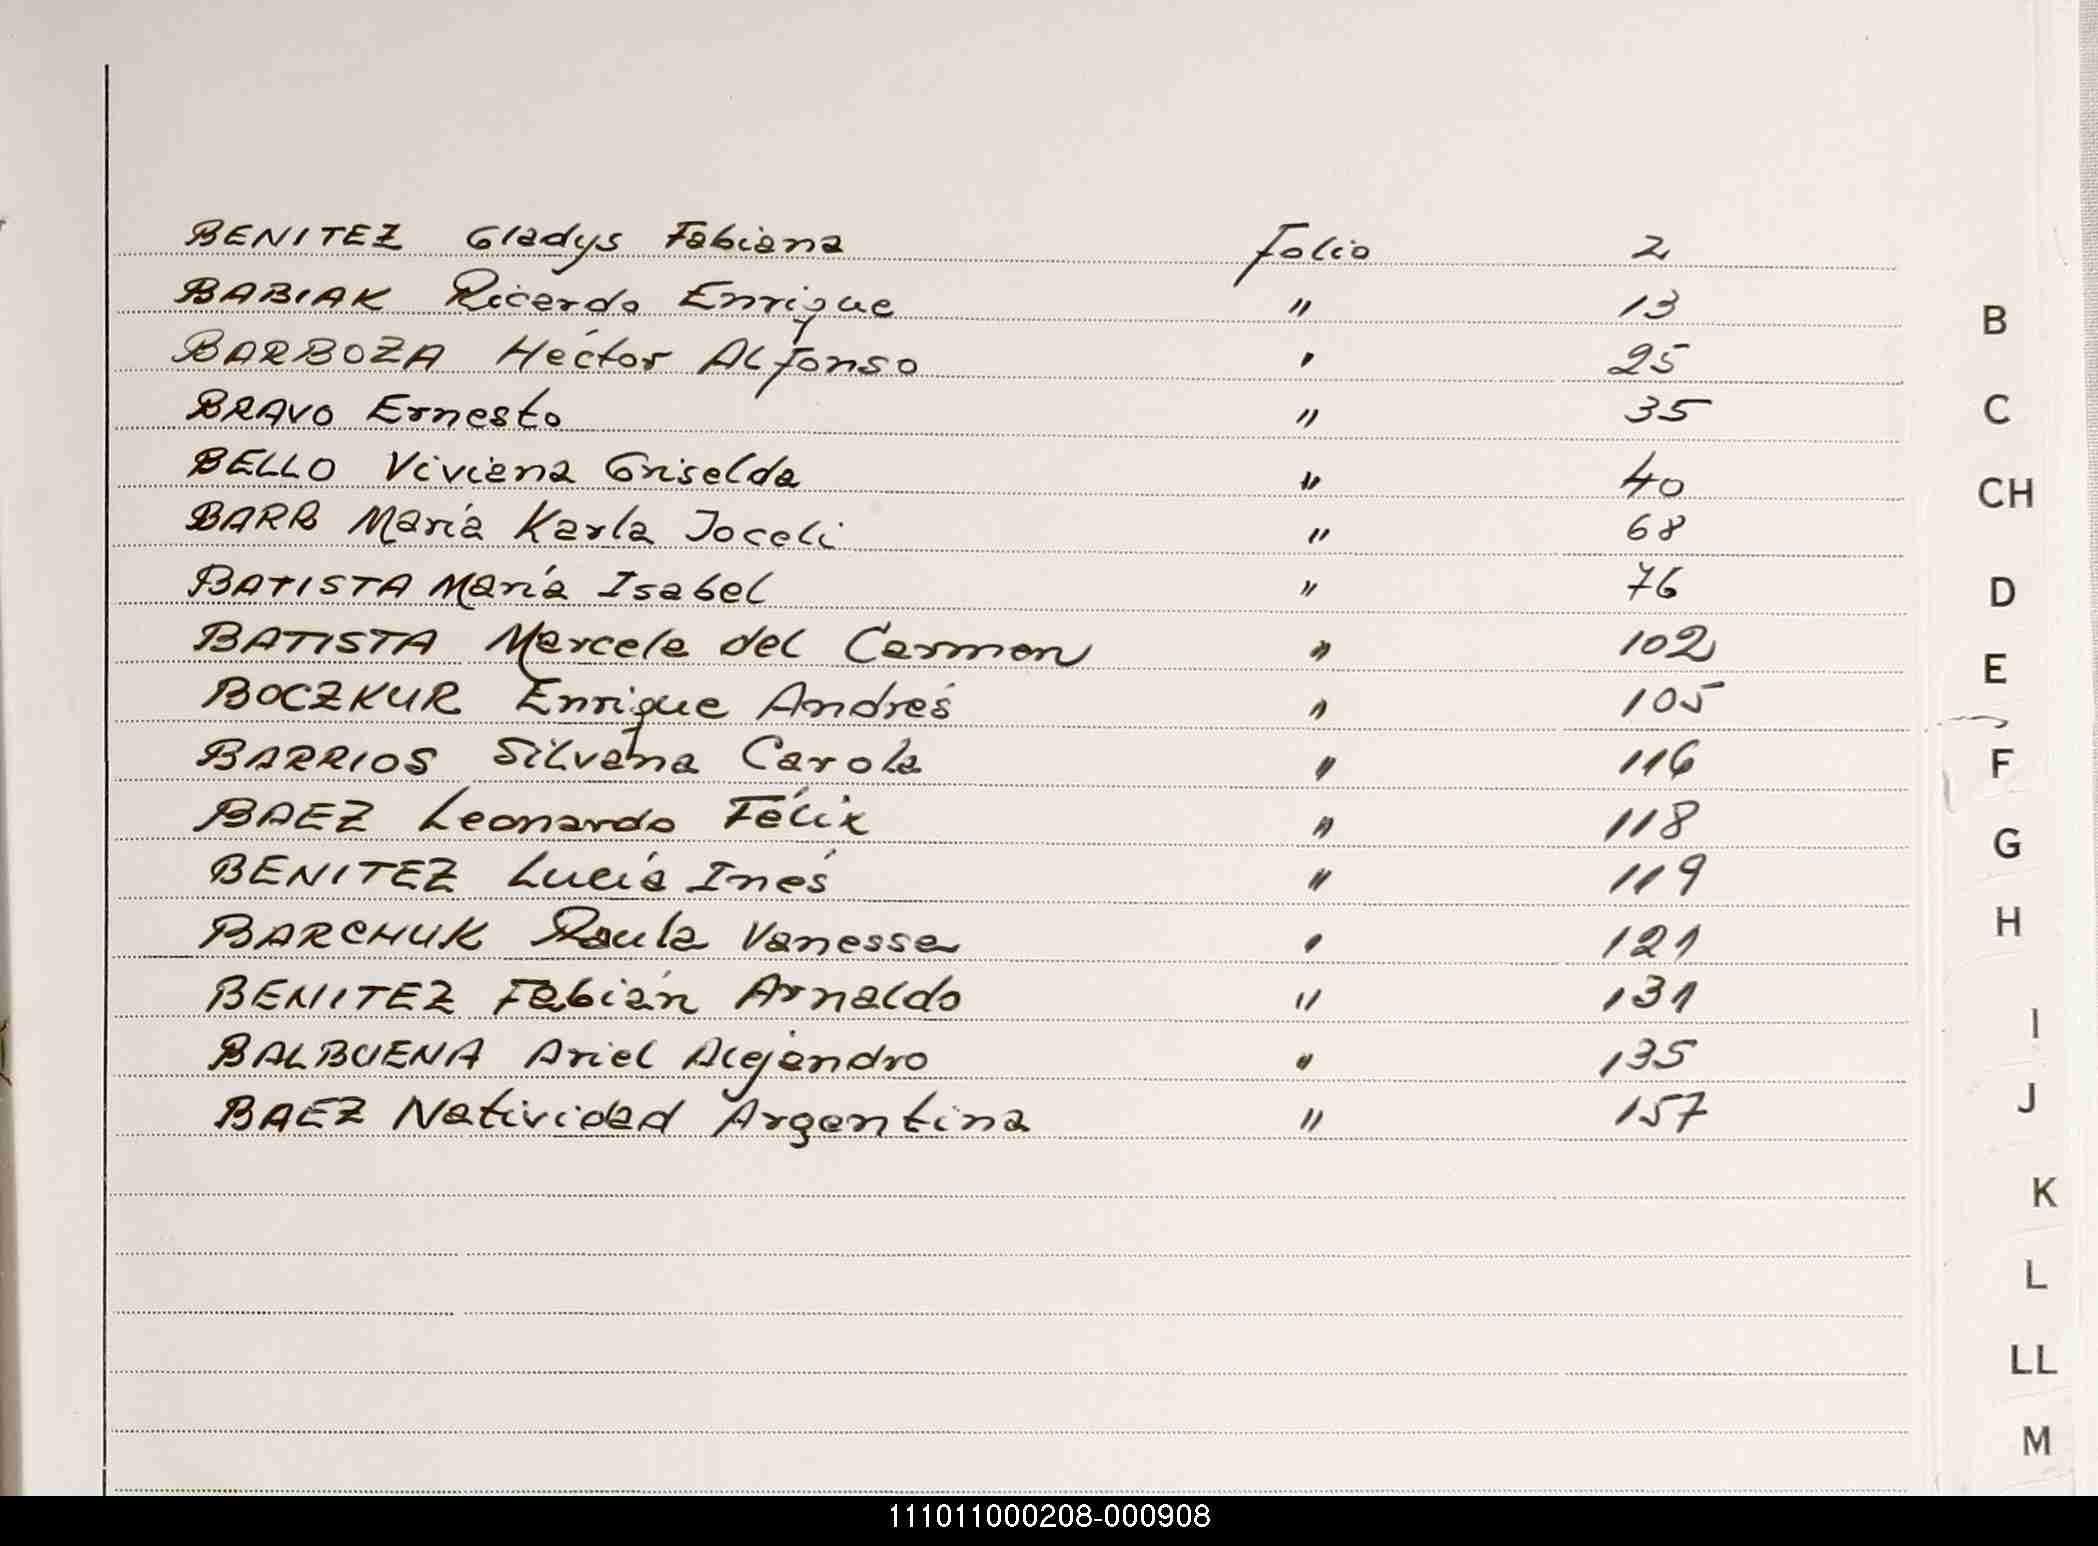 BENITEZ Gladys Fabiana Folio 2
BABIAK Ricardo Enrique " 13
BARBOZA Héctor Alfonso " 25
BRAVO Ernesto " 35
BELLO Viviana Griselda " 40
BARB María Karla Joceli " 68
BATISTA María Isabel " 76
BATISTA Marcela del Carmen " 102
BOCZKUR Enrique Andrés " 105
BARRIOS Silvana Carola " 116
BAEZ Leonardo Félix " 118
BENITEZ Lucía Inés " 119
BARCHUK Paula Vanessa " 121
BENITEZ Fabián Arnaldo " 131
BALBUENA Ariel Alejandro " 135
BAEZ Natividad Argentina " 157
B
C
CH
D
E
F
G
H
I
J
K
L
LL
M
111011000208-000908